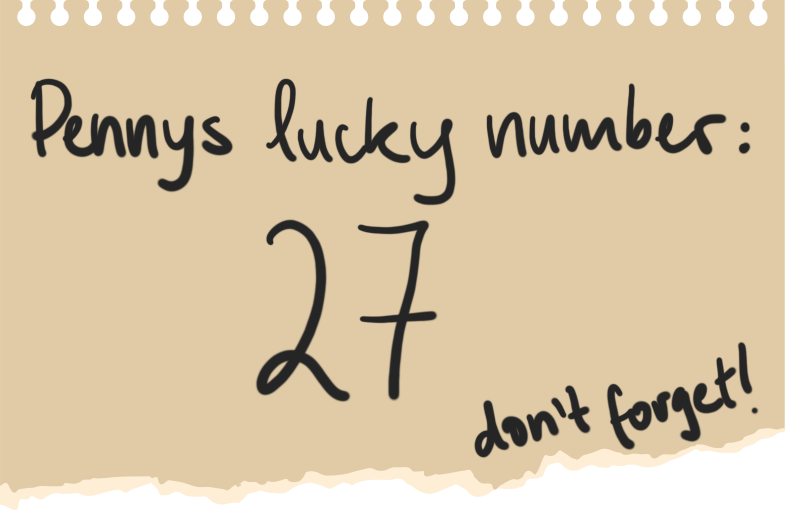 Pennys lucky number:
27
don't forget!